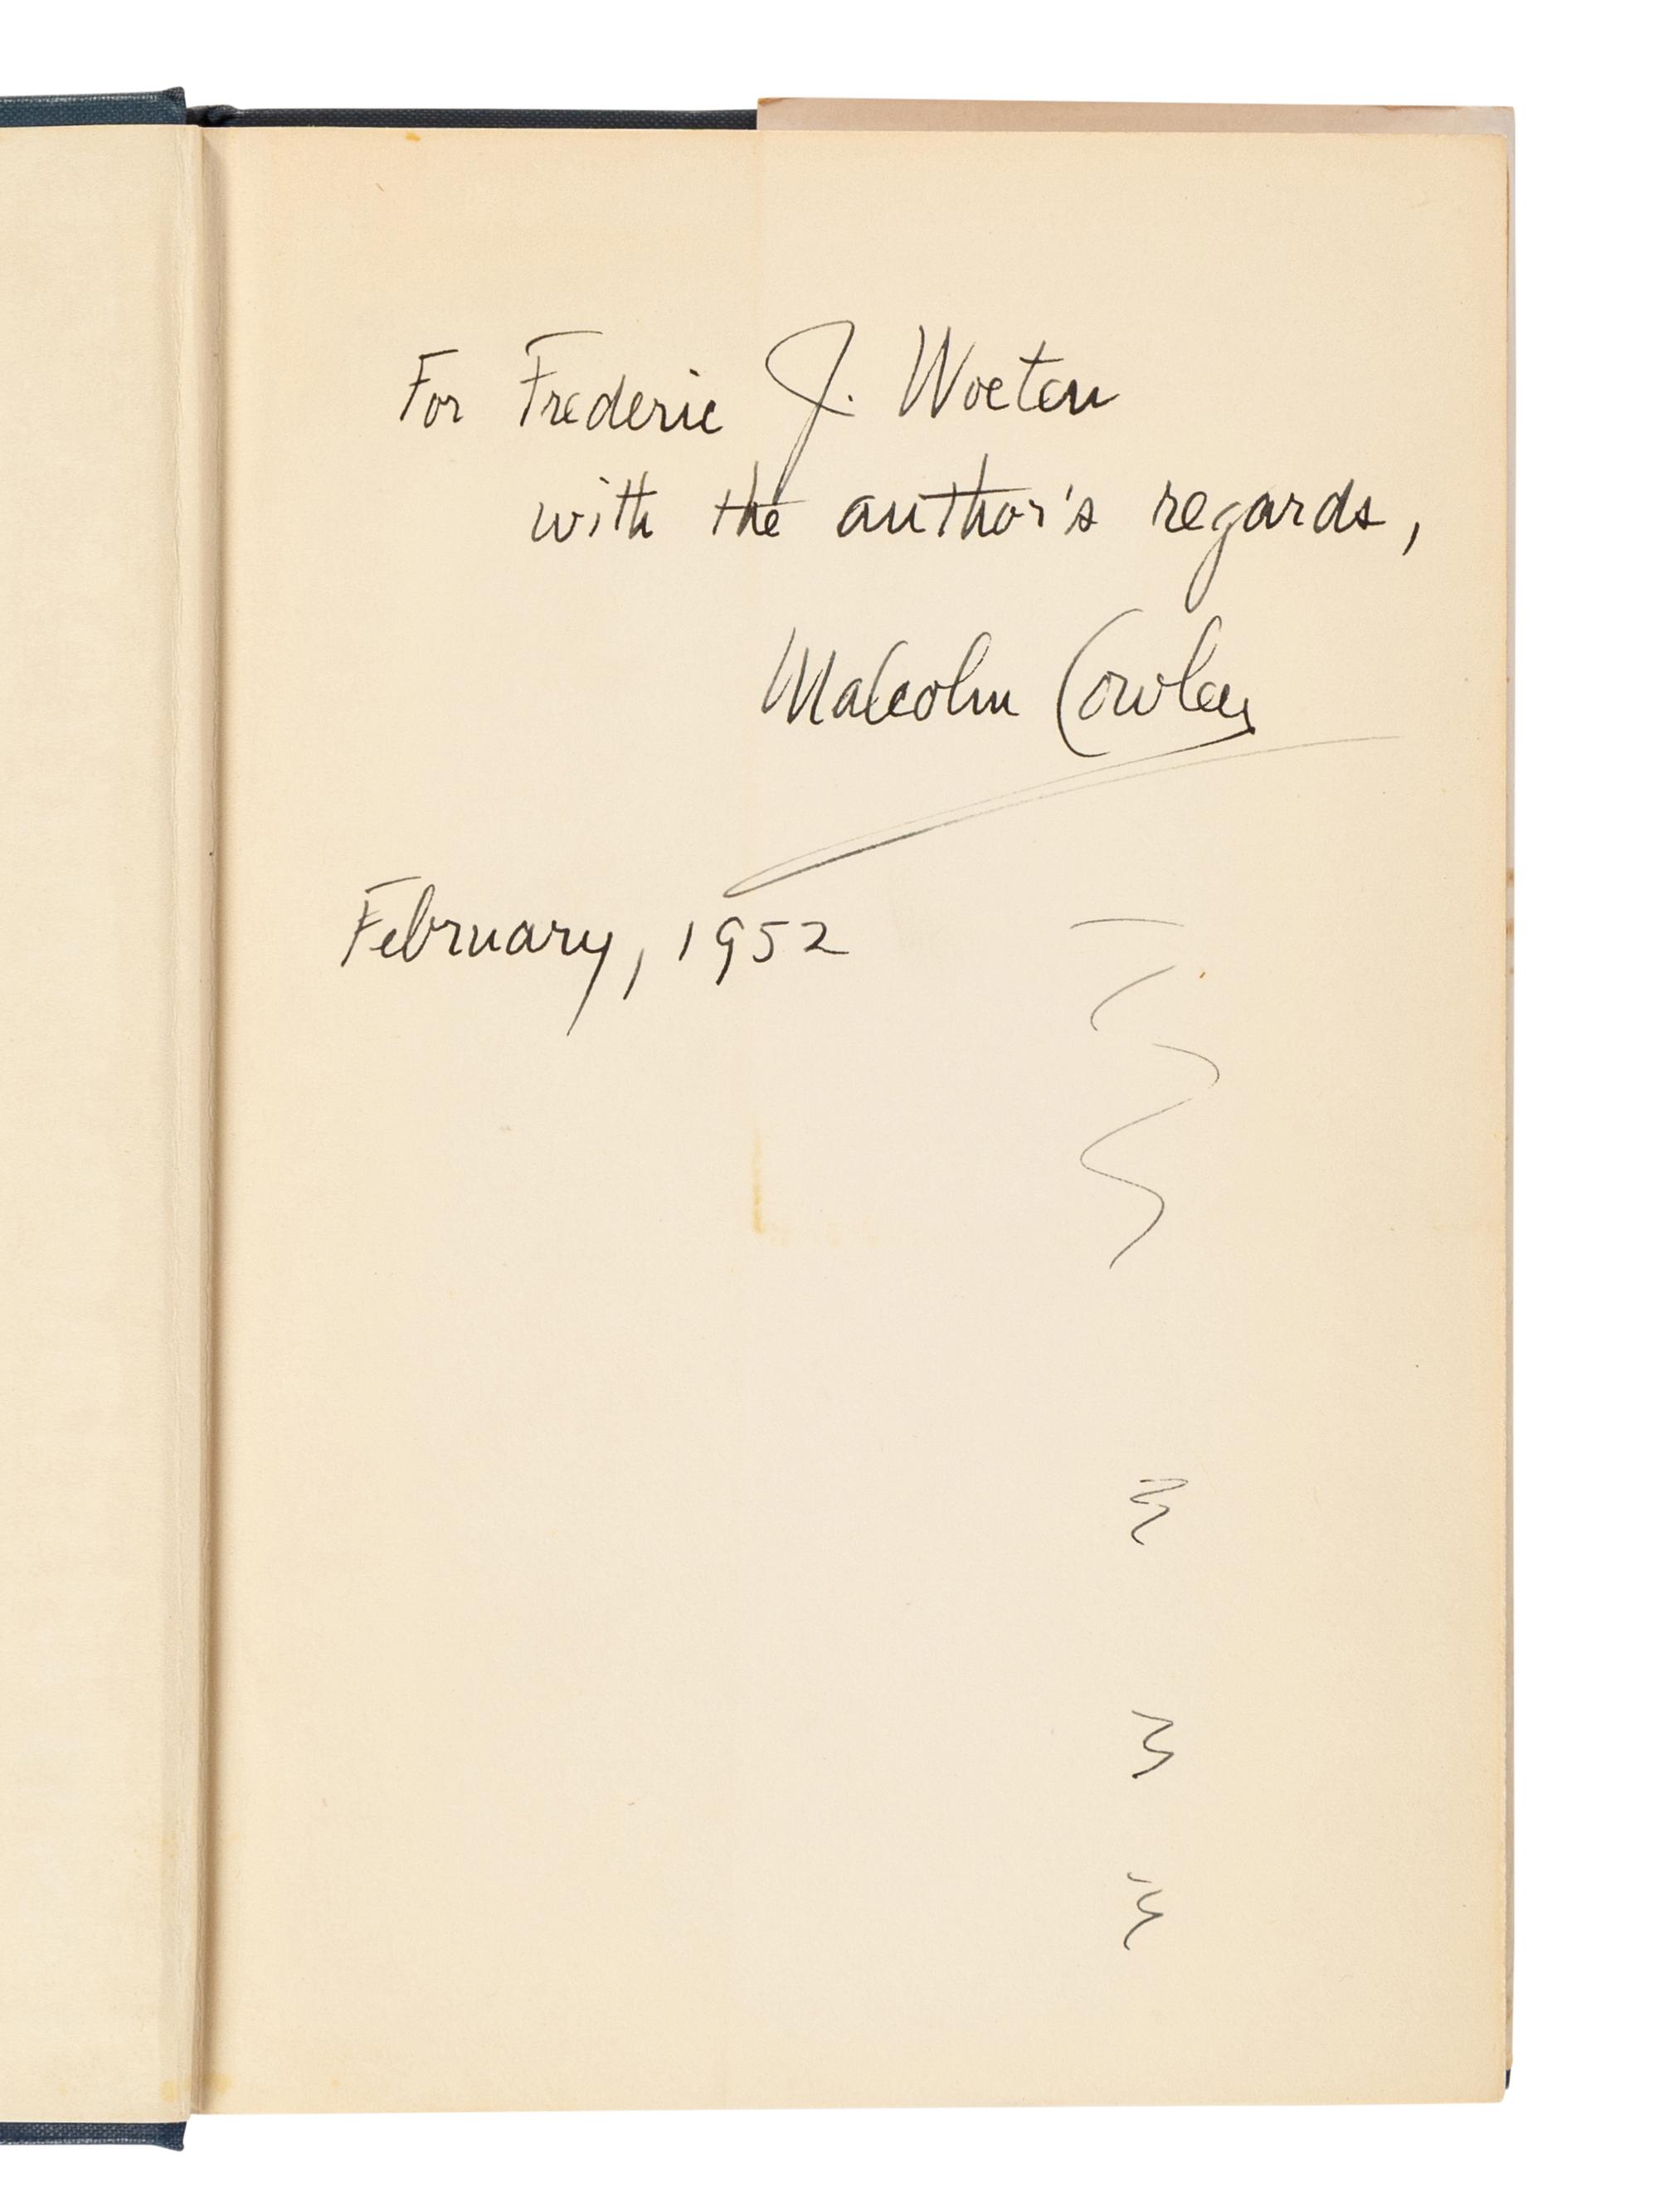 For Frederic J. Woeten
with the author's regards,
Malcolm Cowley
February, 1952